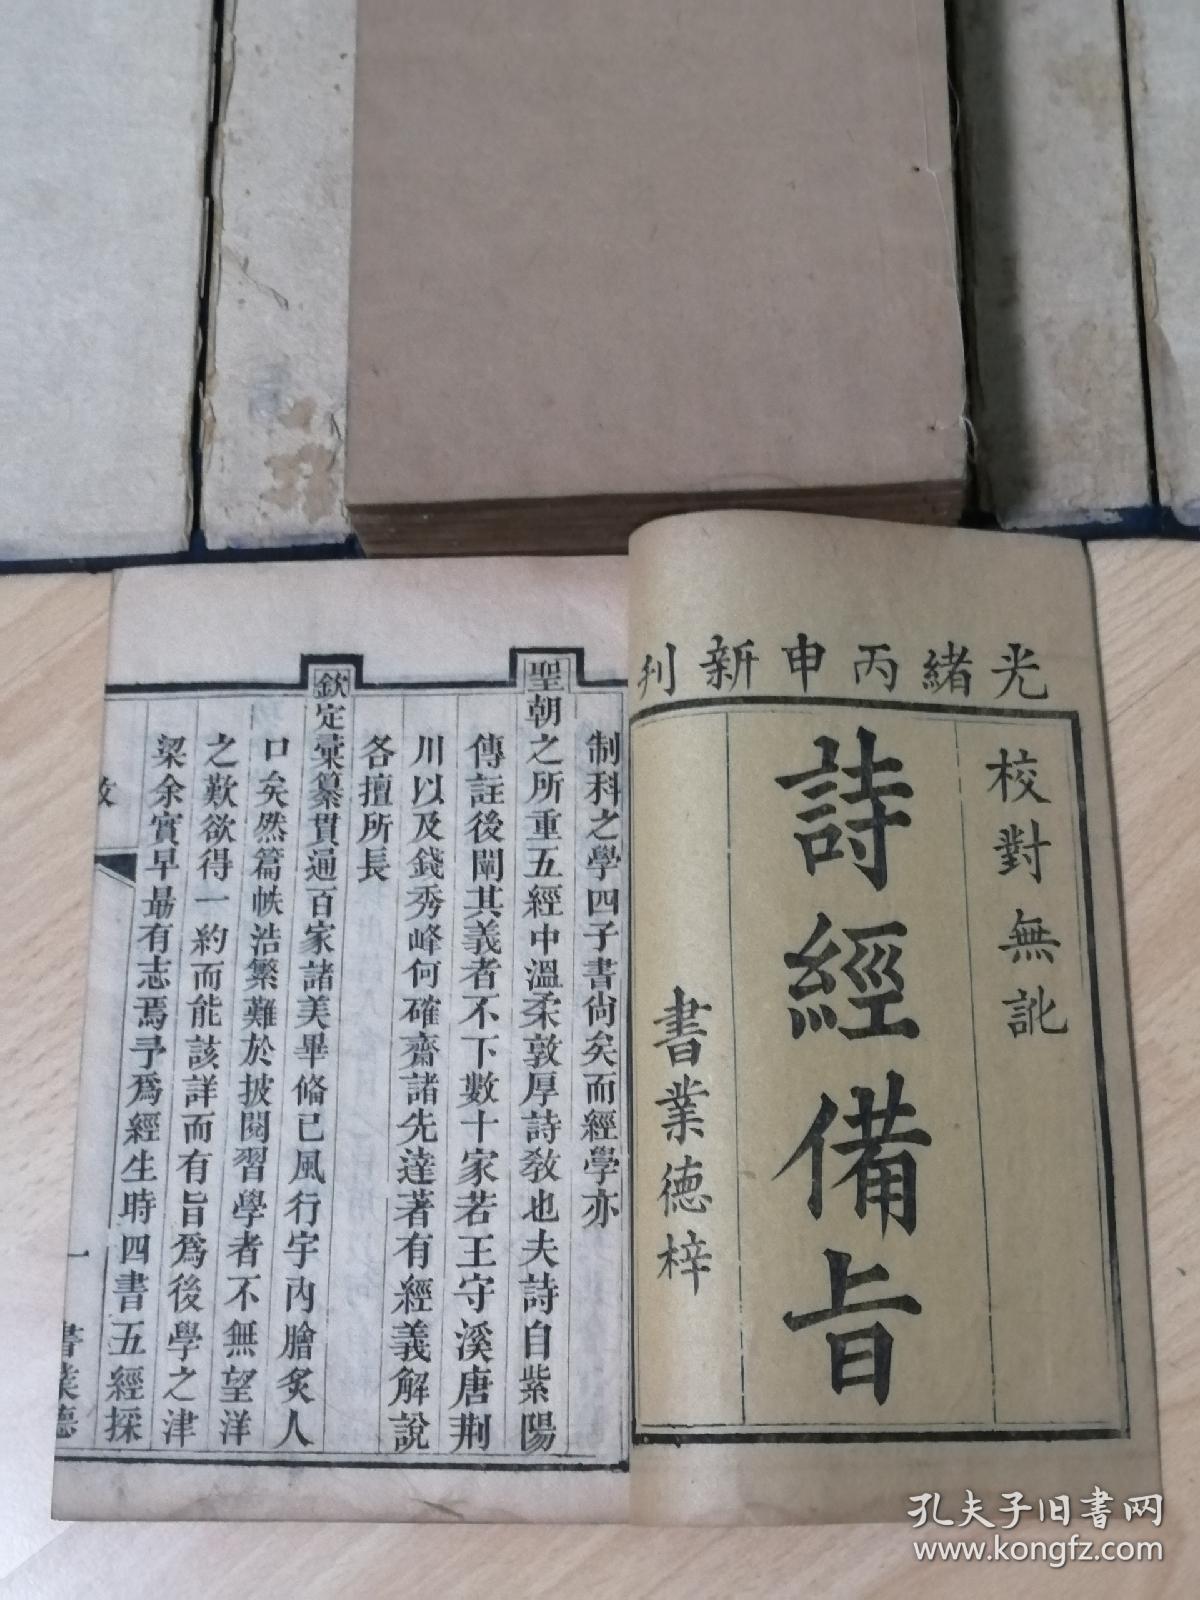 光緒丙申新刊
校對無訛
詩經備旨
書業德梓
制科之學四子書尙矣而經學亦
聖朝之所重五經中溫柔敦厚詩敎也夫詩自紫陽
傳註後闡其義者不下數十家若王守溪唐荆
川以及錢秀峰何確齋諸先達著有經義解說
各擅所長
欽定彙纂貫通百家諸美畢俻已風行宇內膾炙人
口矣然篇帙浩繁難於披閱習學者不無望洋
之歎欲得一約而能該詳而有旨爲後學之津
梁余實早最有志焉予爲經生時四書五經採
一
書業德
孔夫子旧书网
www.kongfz.com